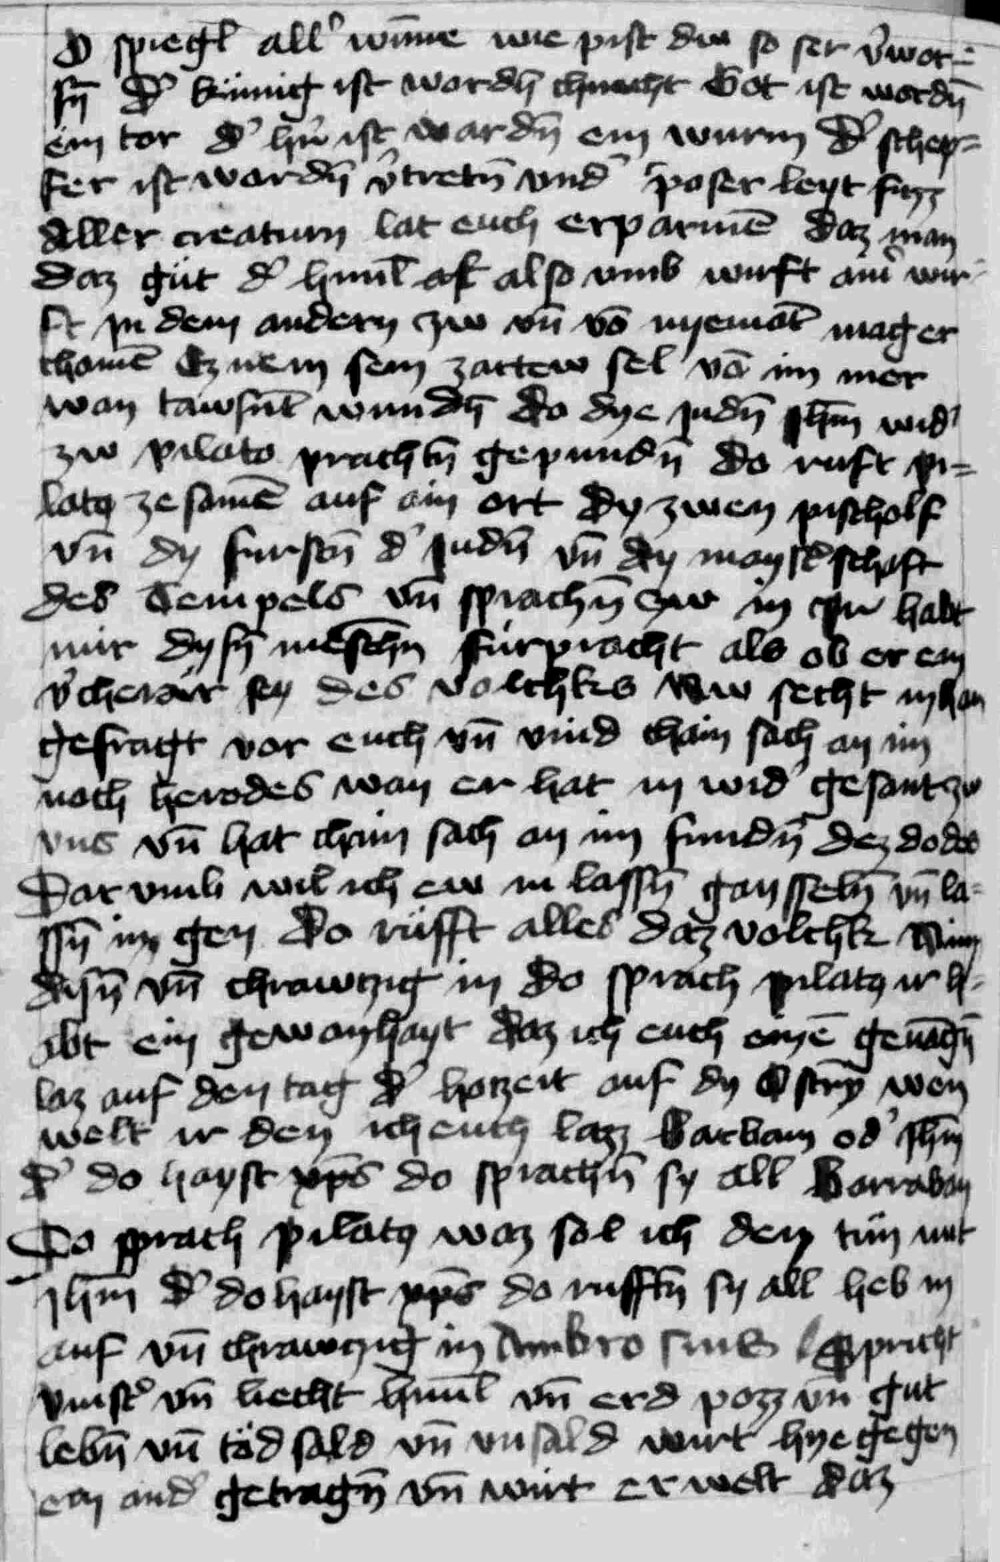 O spiegl̄ all' wūne wie pist dw so ser v̓wor=
fn̄ D' künnig ist wordn̄ chnecht Got ist wordn̄
ein tor d' h'r ist wardn̄ ein wurm d' schep=
fer ist wardn̄ v̓tretn̄ vnd' poser leyt fuzz
Aller creaturn lat euch erparmē daz man
daz güt d' himl̄ also vmb wirft ain' wir
ft in dem andern zw vn̄ vō nyemāt mag er
chomē sein zartew sel vō im mer
wan tawsnt̄ wundn̄ do dye judn̄ jhm̄ wid'
zw pilato prachtn̄ gepundn̄ do ruft pi=
latꝯ zesamē auf ain ort dy zwen pischolf
vn̄ dy furstn̄ d' judn̄ vn̄ dy mayst'schaft
des Tempels vn̄ sprachn̄ zw in jr habt
mir dysn̄ meschn̄ fürpracht als ob er ein
v̓cherär sey des volchks Nw secht in han
gefragt vor euch vn̄ vind chain sach an im
noch herodes wan er hat in wid' gesant zw
vns vn̄ hat chain sach an im fundn̄ dez dodes
Dar vmb wil ich ew in lassn̄ gaysseln̄ vn̄ la=
ssn̄ in gen Do rüfft alles daz volchk Nim
disn̄ vn̄ chrawtzig in do sprach pilatꝯ ir h=
abt ein gewanhayt daz ich euch ainē gevāgn̄
laz auf den tag d' hotzeit auf dy Ostrn̄ wen
welt ir den ich euch lazz Barbam od' jhm̄
d' do hayst xp̄s do sprachn̄ sy all Barraban
Do sprach pilatꝯ waz sol ich den tün mit
jhm̄ d' do hayst xp̄s do rufftn̄ sy all heb in
auf vn̄ chrawtzig in Ambrosius spricht
vinst' vn̄ liecht himl̄ vn̄ erd pozz vn̄ gut
lebn̄ vn̄ töd säld vn̄ vnsald wirt hye gegen
ein and' getragn̄ vn̄ wirt erwelt daz